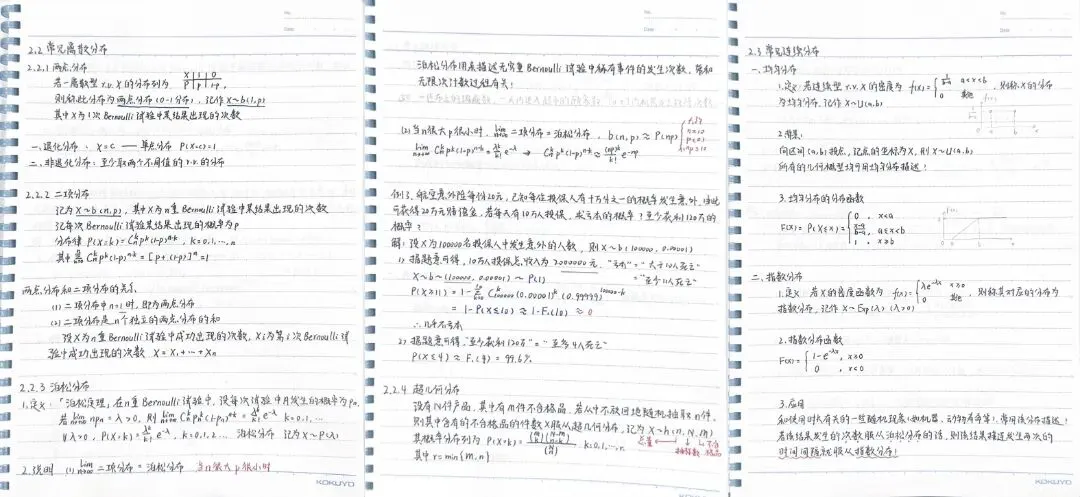 2.2 常见离散分布
2.2.1 两点分布
若一离散型 r.v. X 的分布列为 X | 1 | 0
P | p | 1-p,
则称此分布为两点分布(0-1分布), 记作 X~b(1,p)
其中 X 为1次 Bernoulli 试验中某结果出现的次数
一、退化分布: X=C —— 单点分布 P(X=C)=1
二、非退化分布: 至少取两个不同值的 r.v. 的分布
2.2.2 二项分布
记为 X~b(n,p), 其中 X 为 n 重 Bernoulli 试验中某结果出现的次数
记每次 Bernoulli 试验某结果出现的概率为 p
分布律 P(X=k)=Cₙᵏpᵏ(1-p)ⁿ⁻ᵏ, k=0,1,…,n
其中 Cₙᵏpᵏ(1-p)ⁿ⁻ᵏ=[p+(1-p)]ⁿ=1
两点分布和二项分布的关系
(1) 二项分布中n=1时, 即为两点分布
(2) 二项分布是n个独立的两点分布的和
设 X 为 n 重 Bernoulli 试验中成功出现的次数, Xi为第i次 Bernoulli 试
验中成功出现的次数 X=X₁+…+Xn
2.2.3 泊松分布
1.定义:「泊松定理」在n重 Bernoulli 试验中, 设每次试验中A发生的概率为pn,
若 lim npn=λ>0, 则 lim Cₙᵏpₙᵏ(1-pₙ)ⁿ⁻ᵏ=λᵏ/k! e^-λ k=0,1,…
∀λ>0, P(X=k)=λᵏ/k! e^-λ, k=0,1,2… 泊松分布 记为 X~P(λ)
2.说明 (1) lim 二项分布=泊松分布 当n很大p很小时
泊松分布用来描述无穷重 Bernoulli 试验中稀有事件的发生次数, 常和
无限次计数过程有关!
(2) 当n很大p很小时, lim 二项分布=泊松分布, b(n,p)≈P(np)
lim Cₙᵏpᵏ(1-p)ⁿ⁻ᵏ=λᵏ/k! e^-λ → Cₙᵏpᵏ(1-p)ⁿ⁻ᵏ≈(np)ᵏ/k! e^-np
例3. 航空意外险每份20元, 已知每位投保人有十万分之一的概率发生意外, 由此
可获得20万元赔偿金, 若每人有10万人投保, 求亏本的概率? 至少获利120万的
概率?
解: 设 X 为100000名投保人中发生意外的人数, 则 X~b(100000, 0.00001)
1) 据题意可得, 10万人投保总收入为2000000元, "亏本"="大于10人死亡"
X~b~(100000, 0.00001)~P(1) ="至少11人死亡"
P(X≥11)=1-Σ C₁₀₀₀₀₀ᵏ(0.00001)ᵏ(0.99999)¹⁰⁰⁰⁰⁰⁻ᵏ
=1-P(X≤10)≈1-F₁(10)≈0
∴几乎不亏本
2) 据题意可得, "至少获利120万"="至多4人死亡"
P(X≤4)≈F₁(4)=99.6%
2.2.4 超几何分布
设有N件产品, 其中有M件不合格品, 若从中不放回地随机抽取n件,
则其中含有的不合格品的件数X服从超几何分布, 记为 X~h(n,N,M)
其概率分布列为 P(X=k)=(M k)(N-M n-k)/(N n) k=0,1,…,r.
总量 抽样数 不合格品
其中 r=min{M,n}
KOKUYO
2.3 常见连续分布
一.均匀分布
1.定义: 若连续型 r.v. X 的密度为 f(x)={1/(b-a) a<x<b
0 其他, 则称X的分布
为均匀分布, 记作 X~U(a,b)
2.背景:
向区间(a,b)投点, 记点的坐标为X, 则 X~U(a,b)
所有的几何概型均可用均匀分布描述!
3.均匀分布的分布函数
F(x)=P(X≤x)={0, x<a
(x-a)/(b-a), a≤x<b
1, x≥b
二.指数分布
1.定义 若X的密度函数为 f(x)={λe^-λx x≥0
0 其他, 则称其对应的分布为
指数分布, 记作 X~Exp(λ) (λ>0)
2.指数分布函数
F(x)={1-e^-λx, x≥0
0, x<0
3.应用
和使用时长有关的一些随机现象(如机器, 动物寿命等), 常用该分布描述!
若该结果发生的次数服从泊松分布的话, 则该结果接连发生两次的
时间间隔就服从指数分布!
KOKUYO